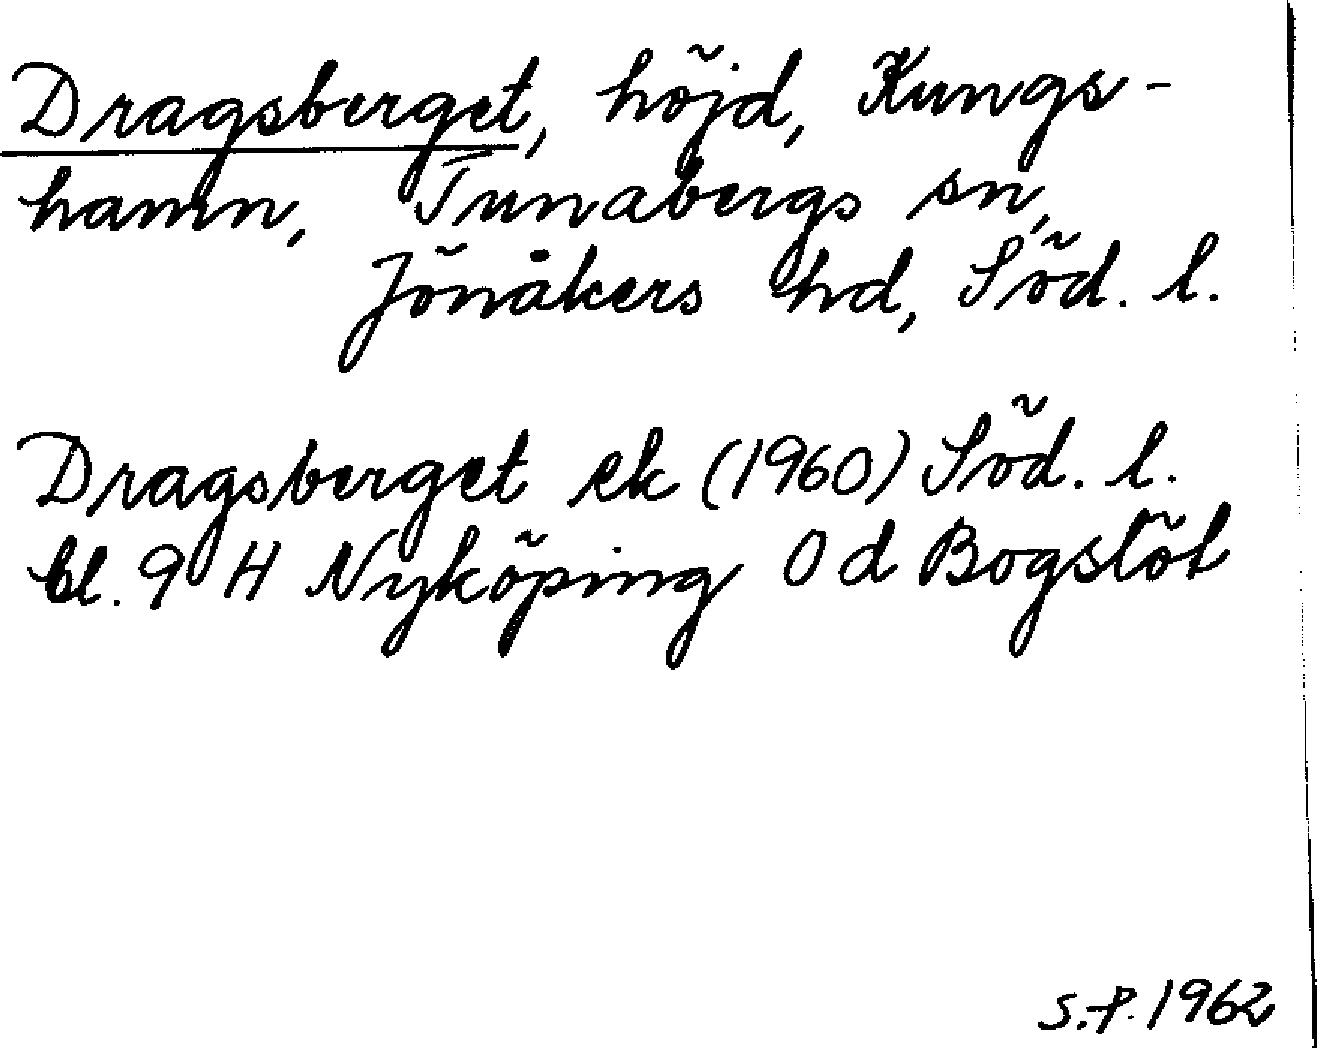 Dragsberget, höjd, Kungs-
hamn, Tunabergs sn,
Jönåkers hd, Söd. l.
Dragsberget ek (1960) Söd. l.
bl. 9 H Nyköping 0 d Bogslöt
S.P. 1962